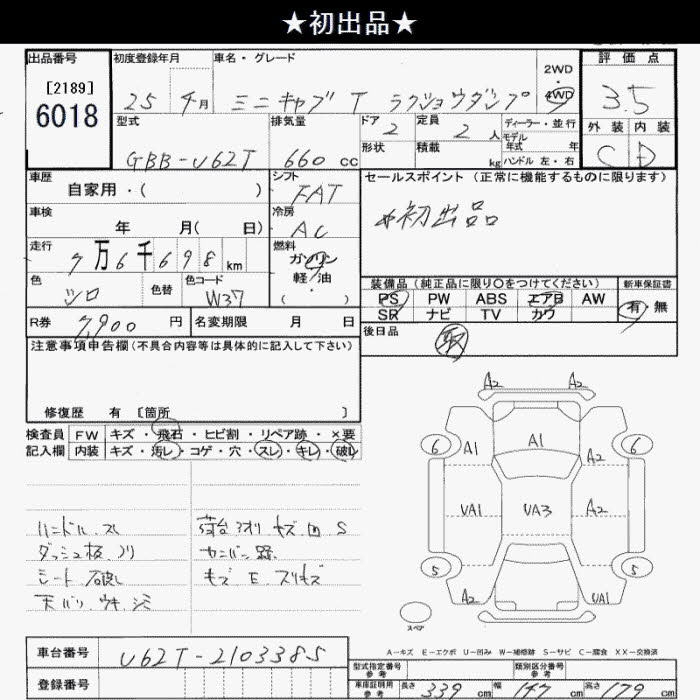 ★初出品★
出品番号
[2189]
6018
初度登録年月
25年4月
車名・グレード
ミニキャブ T ラクショウダンプ
2WD
・
4WD
評価点
3.5
外装 内装
C D
型式
GBB-U62T
排気量
660 cc
ドア
2
定員
2 人
ディーラー・並行
モデル
年式 年
形状
積載
kg
ハンドル 左・右
車歴
自家用・( )
シフト
FAT
セールスポイント(正常に機能するものに限ります)
初出品
車検
年 月( 日)
冷房
AC
走行
7万6千698km
燃料
ガソリン
軽・油
( ・ )
色
シロ
色替
色コード
W37
装備品(純正品に限り○をつけてください)
PS PW ABS エアB AW
SR ナビ TV カワ
新車保証書
有・無
R券
7,900 円
名変期限 月 日
後日品
取
注意事項申告欄(不具合内容等は具体的に記入して下さい)
修復歴 有 [箇所 ]
検査員
記入欄
FW キズ・飛石・ヒビ割・リペア跡・×要
内装 キズ・汚レ・コゲ・穴・スレ・キレ・破レ
ハンドル スレ
ダッシュ板 ノリ
シート 破レ
天バリ ウキ シミ
荷台 アオリ キズ 凹 S
カンバン跡
キズ E スリキズ
A2 A2
6 A1 A1 A2 6
UA1 UA3 A2
5 5
A2 A2 UA1
スペア
A－キズ E－エクボ U－凹み W－補修跡 S－サビ C－腐食 XX－交換済
車台番号
U62T-2103385
登録番号
型式指定番号
参考
類別区分番号
参考
車庫証明用
参考
長さ 339 cm 幅 147 cm 高さ 179 cm